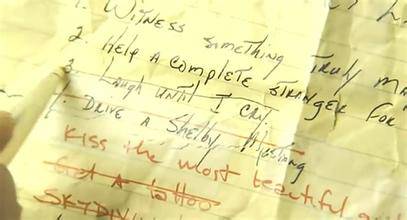 1. Witness something truly ma
2. Help a complete stranger for
3. Laugh until I cry
4. Drive a Shelby Mustang
Kiss the most beautiful g
Get a tattoo
SKYDIVI